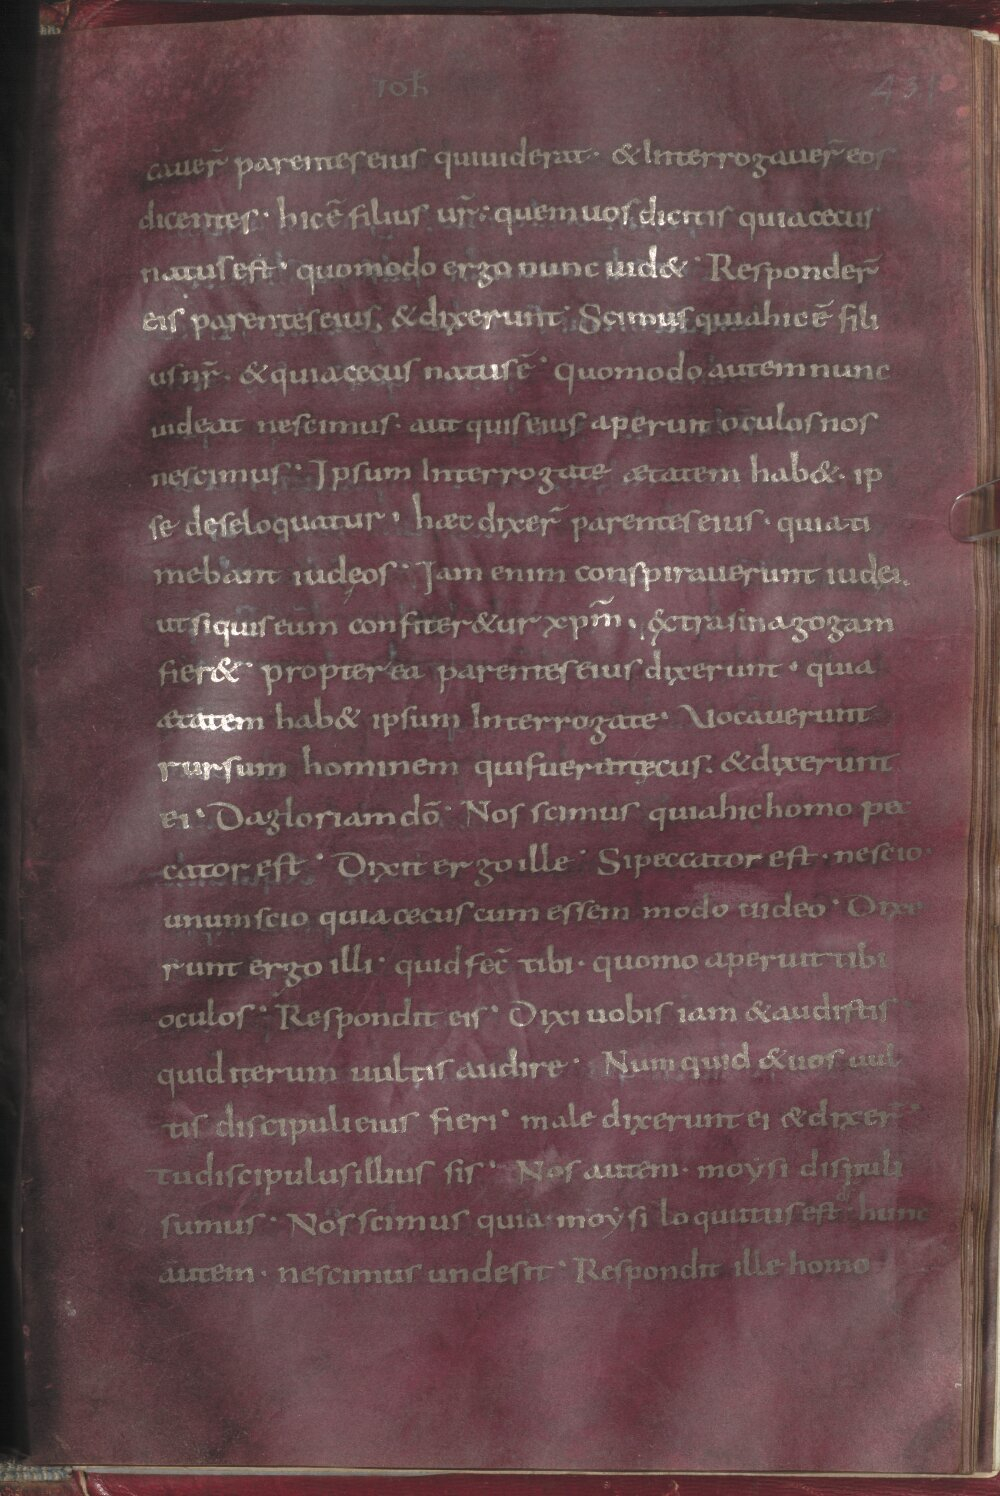 ioħ
431
cauer̄ parentes eius qui uiderat· & Interrogauer̄ eos
dicentes· hic ē filius ur̄· quem uos dicitis quia cecus
natus est· quomodo ergo nunc uid&· Responder̄
eis parentes eius, & dixerunt· Scimus quia hic ē fili
us nr̄· & quia cecus natus ē· quomodo autem nunc
uideat nescimus· aut quis eius aperuit oculos nos
nescimus· Ipsum Interrogate ætatem hab&· ip
se de se loquatur· hæc dixer̄ parentes eius· quia ti
mebant iudeos· Iam enim conspirauerunt iudei,
ut si quis eum confiter&ur xp̄m, extra sinagogam
fier& propter ea parentes eius dixerunt· quia
ætatem hab& ipsum Interrogate· Uocauerunt
rursum hominem qui fuerat cecus· & dixerunt
ei· Da gloriam dō· Nos scimus quia hic homo pec
cator est· Dixit ergo ille· Si peccator est· nescio·
unum scio quia cecus cum essem modo uideo· Dixe
runt ergo illi· quid fec̄ tibi· quomo aperuit tibi
oculos· Respondit eis· Dixi uobis iam & audistis
quid iterum uultis audire· Numquid & uos uul
tis discipuli eius fieri· male dixerunt ei & dixer̄·
tu discipulus illius sis· Nos autem· moysi disipuli
sumus· Nos scimus quia moysi loquutus est· hunc
autem· nescimus unde sit· Respondit ille homo